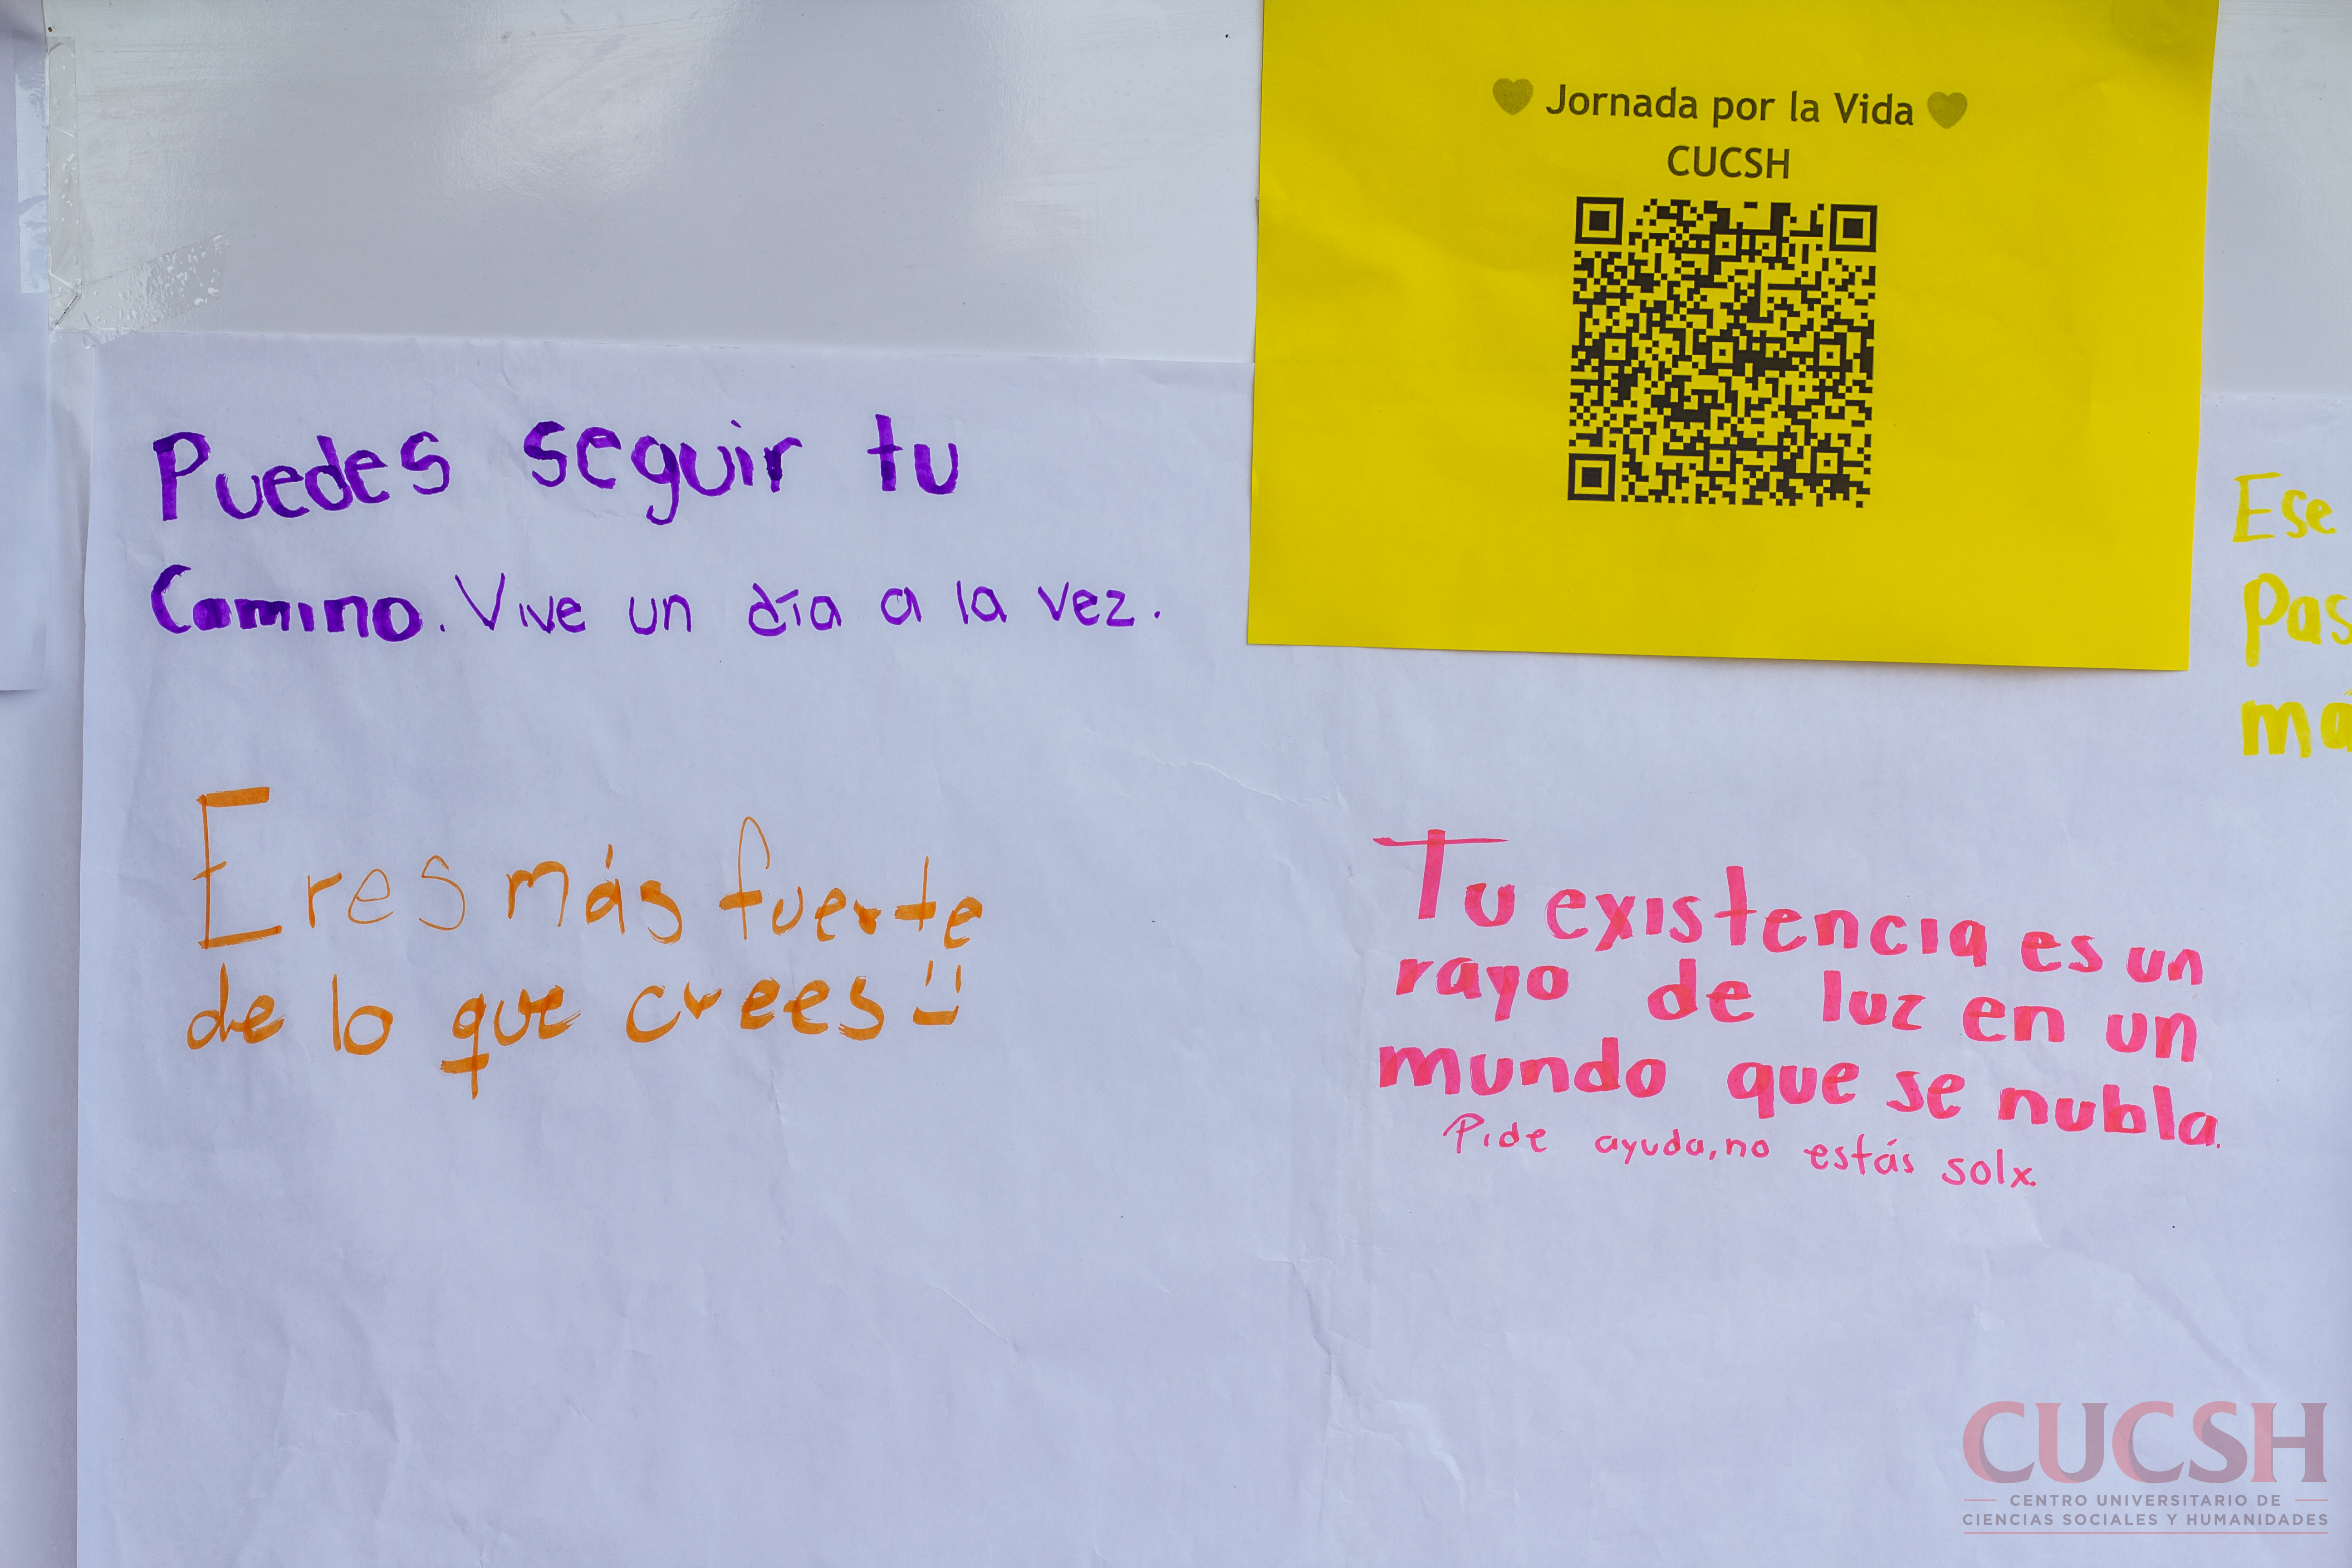 Jornada por la Vida
CUCSH
Puedes seguir tu
Camino. Vive un día a la vez.
Eres más fuerte
de lo que crees
Tu existencia es un
rayo de luz en un
mundo que se nubla.
Pide ayuda, no estás solx.
Ese
CUCSH
CENTRO UNIVERSITARIO DE
CIENCIAS SOCIALES Y HUMANIDADES